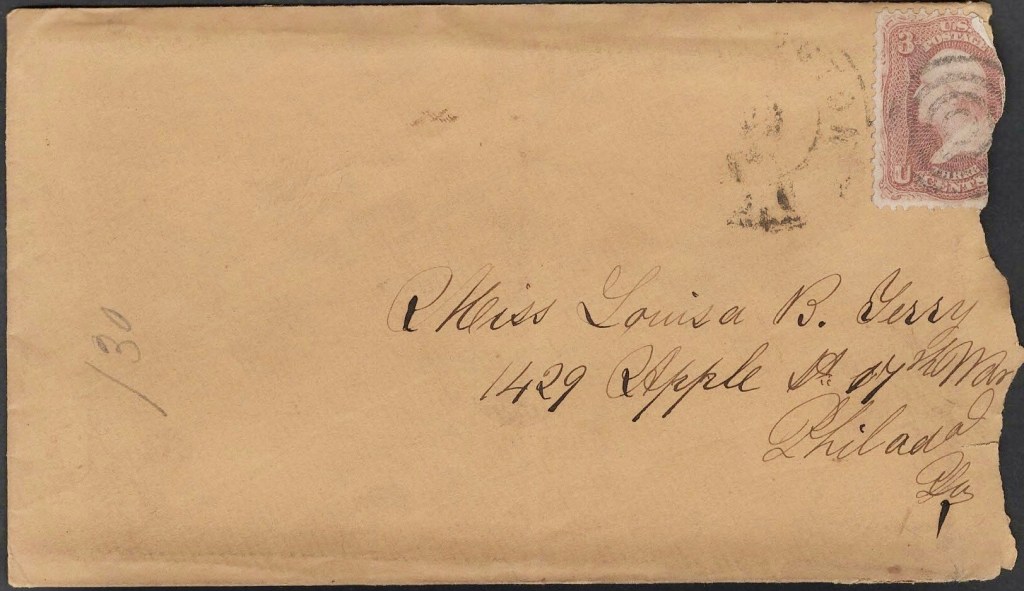 3 U.S.
POSTAGE
U THREE
CENTS
Miss Louisa B. Terry
1429 Apple St. 17th War
Philada
Pa
130